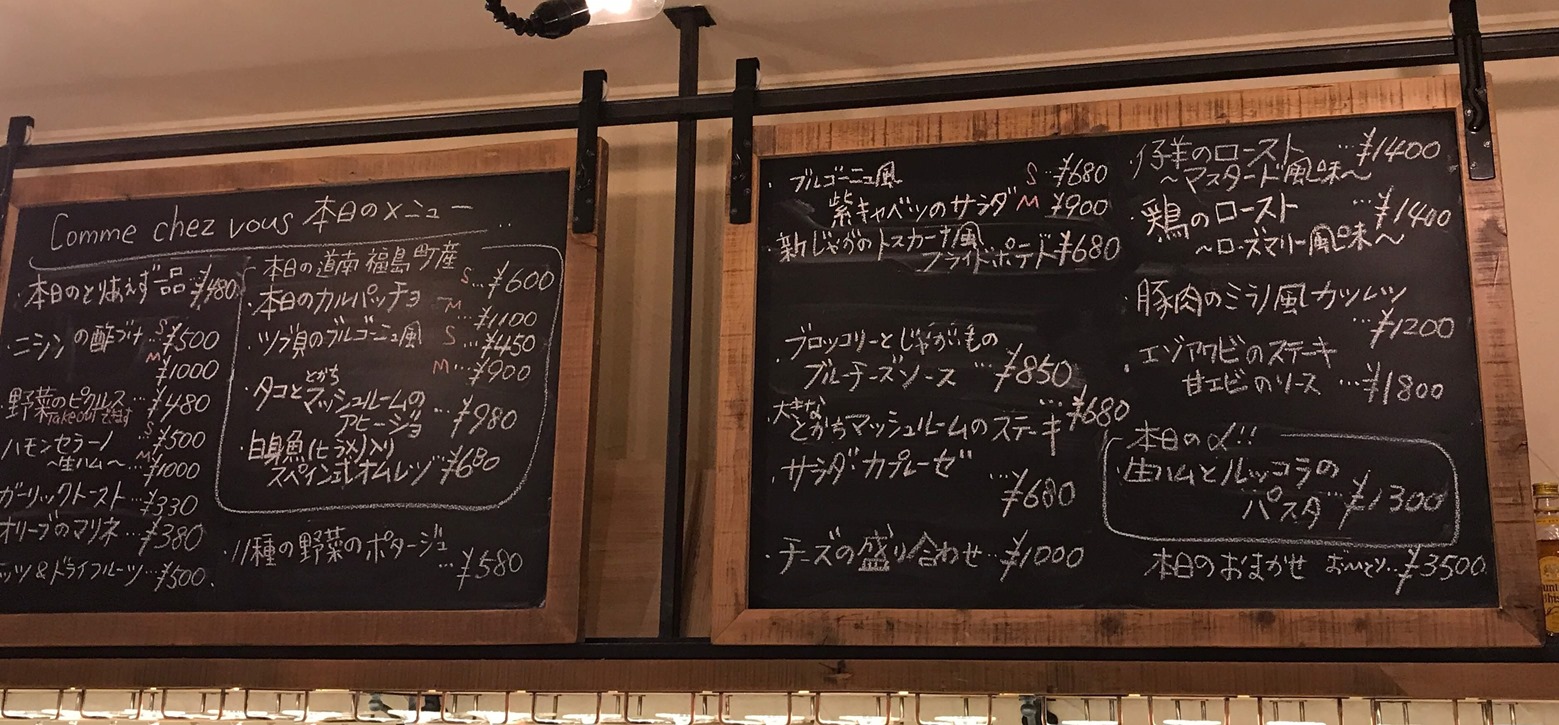 Comme chez vous 本日のメニュー
・本日のとりあえず一品 ¥480
・ニシンの酢づけ S ¥500
M ¥1000
・野菜のピクルス …¥480
Take outできます
ハモンセラーノ S ¥500
～生ハム～ M ¥1000
ガーリックトースト…¥330
オリーブのマリネ…¥380
ッツ&ドライフルーツ…¥500.
本日の道南福島町産
・本日のカルパッチョ S…¥600
M…¥1100
・ツブ貝のブルゴーニュ風 S…¥450
M…¥900
・タコととかち
マッシュルームの
アヒージョ …¥980
・白身魚(ヒラメ)入り
スペイン式オムレツ ¥680
・11種の野菜のポタージュ
…¥580
・ブルゴーニュ風 S…¥680
紫キャベツのサラダ M ¥900
・新じゃがのトスカーナ風
フライドポテト ¥680
・ブロッコリーとじゃがいもの
ブルーチーズソース …¥850
・大きな
とかちマッシュルームのステーキ …¥680
・サラダカプレーゼ
¥680
・チーズの盛り合わせ…¥1000
・仔羊のロースト …¥1400
～マスタード風味～
・鶏のロースト …¥1400
～ローズマリー風味～
・豚肉のミラノ風カツレツ
¥1200
・エゾアワビのステーキ
甘エビのソース …¥1800
本日のα!!
・生ハムとルッコラの
パスタ…¥1300
本日のおまかせ お一人…¥3500